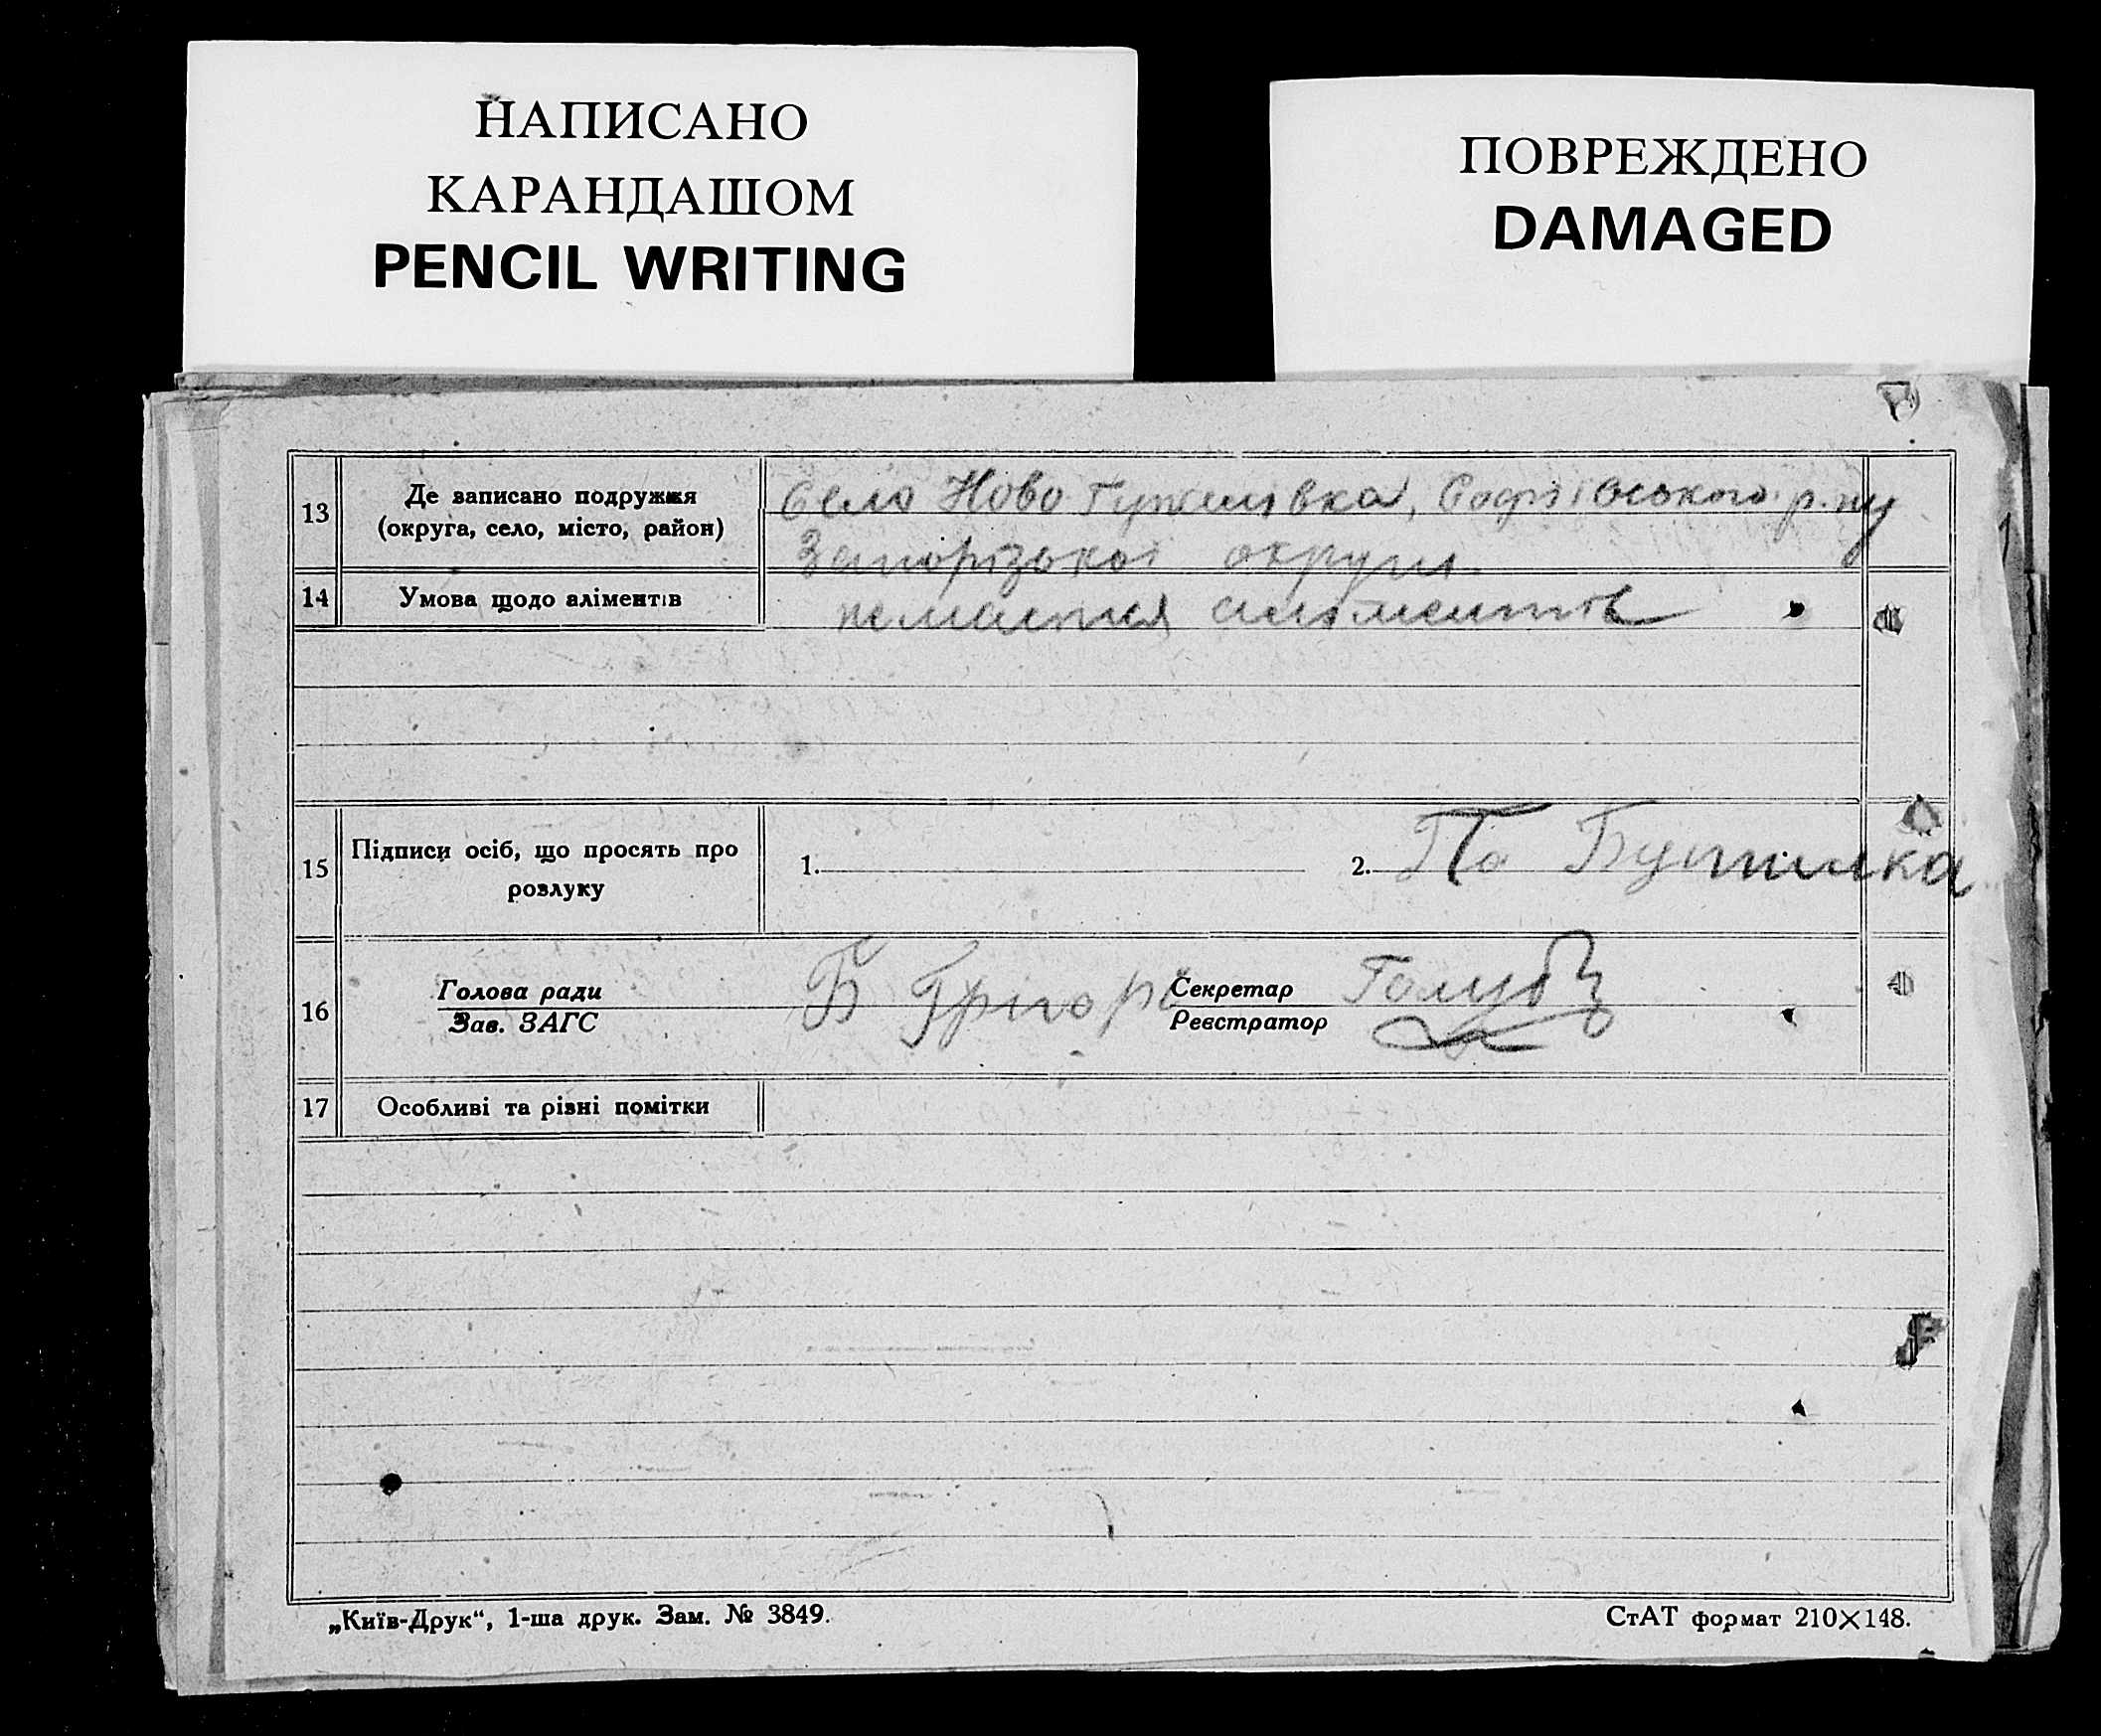 НАПИСАНО
КАРАНДАШОМ
PENCIL WRITING
ПОВРЕЖДЕНО
DAMAGED
13
Де записано подружжя
(округа, село, місто, район)
Село Ново
Запорізької округи
14
Умова щодо аліментів
аліментів
15
Підписи осіб, що просять про
розлуку
1.
2.
16
Голова ради
Зав. ЗАГС
Секретар
Реєстратор
Голуб
17
Особливі та різні помітки
„Київ-Друк“, 1-ша друк. Зам. № 3849.
СтАТ формат 210×148.